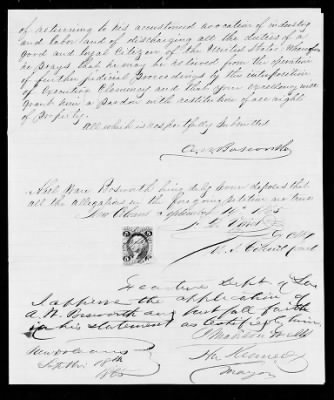 of returning to his accustomed avocation of industry
and labor and of discharging all the duties of a
good and loyal Citizen of the United States. Wherefore
he prays that he may be relieved from the operation
of further judicial proceedings by the interposition
of Executive Clemency and that your excellency will
grant him a pardon with restitution of all rights
of property.
All which is respectfully submitted
A. W. Bosworth
Able Ware Bosworth being duly sworn deposes that
all the allegations in the foregoing petition are true
New Orleans September 1865
Executive Dept of La
I approve the application of
A. W. Bosworth and put full faith
in his statement as certified by him
J Madison Wells
Hu Kennedy
Mayor
New Orleans
Septbr 18th
1865